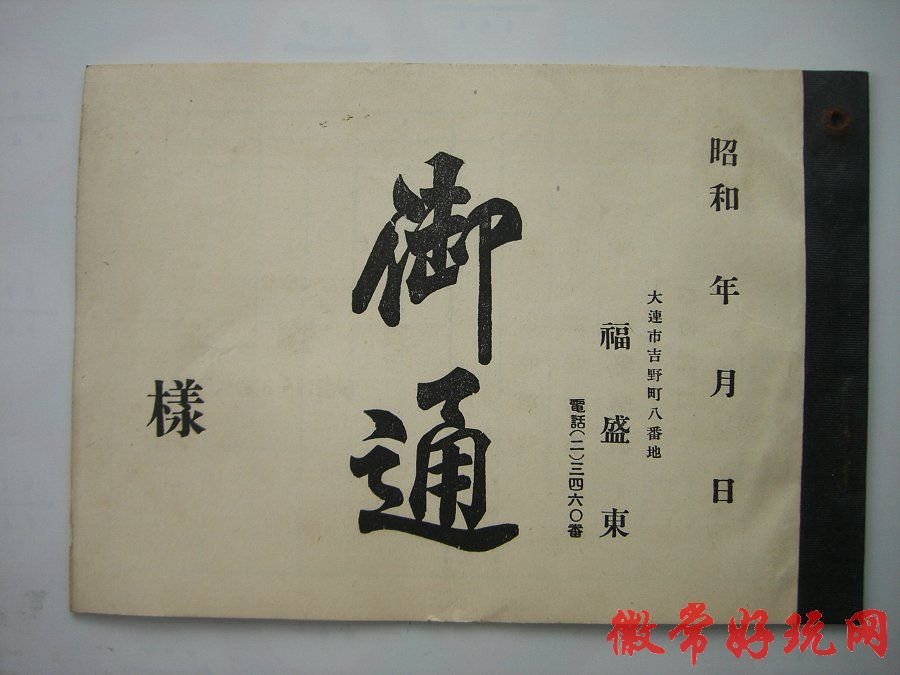 昭和 年 月 日
大連市吉野町八番地
福盛東
電話(二)三四六〇番
御通
樣
徽常好玩网